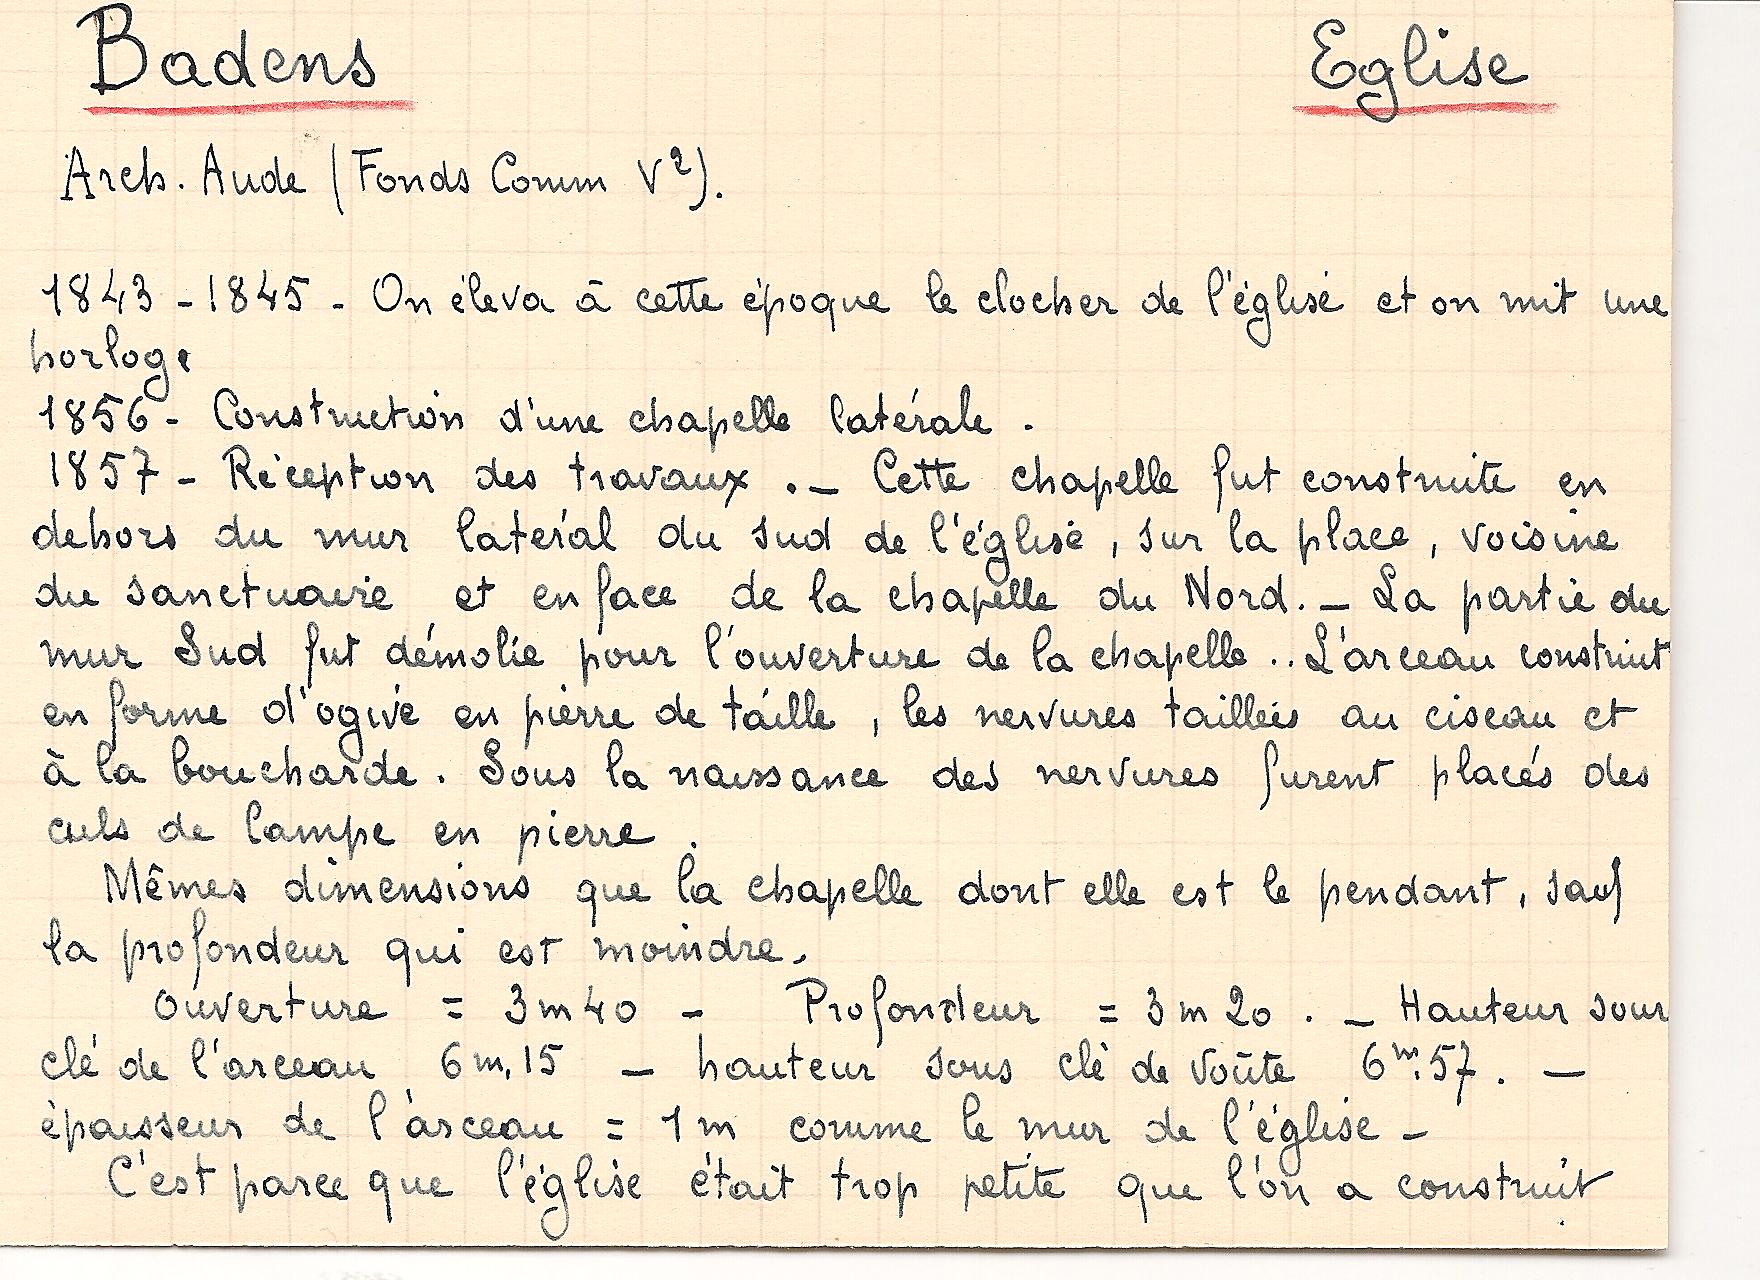 Badens Eglise
Arch. Aude (Fonds Comm V²).
1843 - 1845 - On éleva à cette époque le clocher de l'église et on mit une
horloge
1856 - Construction d'une chapelle latérale.
1857 - Réception des travaux. - Cette chapelle fut construite en
dehors du mur latéral du sud de l'église, sur la place, voisine
du sanctuaire et en face de la chapelle du Nord. - La partie du
mur Sud fut démolie pour l'ouverture de la chapelle .. L'arceau construit
en forme d'ogive en pierre de taille, les nervures taillées au ciseau et
à la boucharde. Sous la naissance des nervures furent placés des
culs de lampe en pierre.
Mêmes dimensions que la chapelle dont elle est le pendant, sauf
la profondeur qui est moindre.
Ouverture = 3m40 - Profondeur = 3m20. - Hauteur sour
clé de l'arceau 6m,15 - hauteur sous clé de voûte 6m.57. -
épaisseur de l'arceau = 1m comme le mur de l'église -
C'est parce que l'église était trop petite que l'on a construit